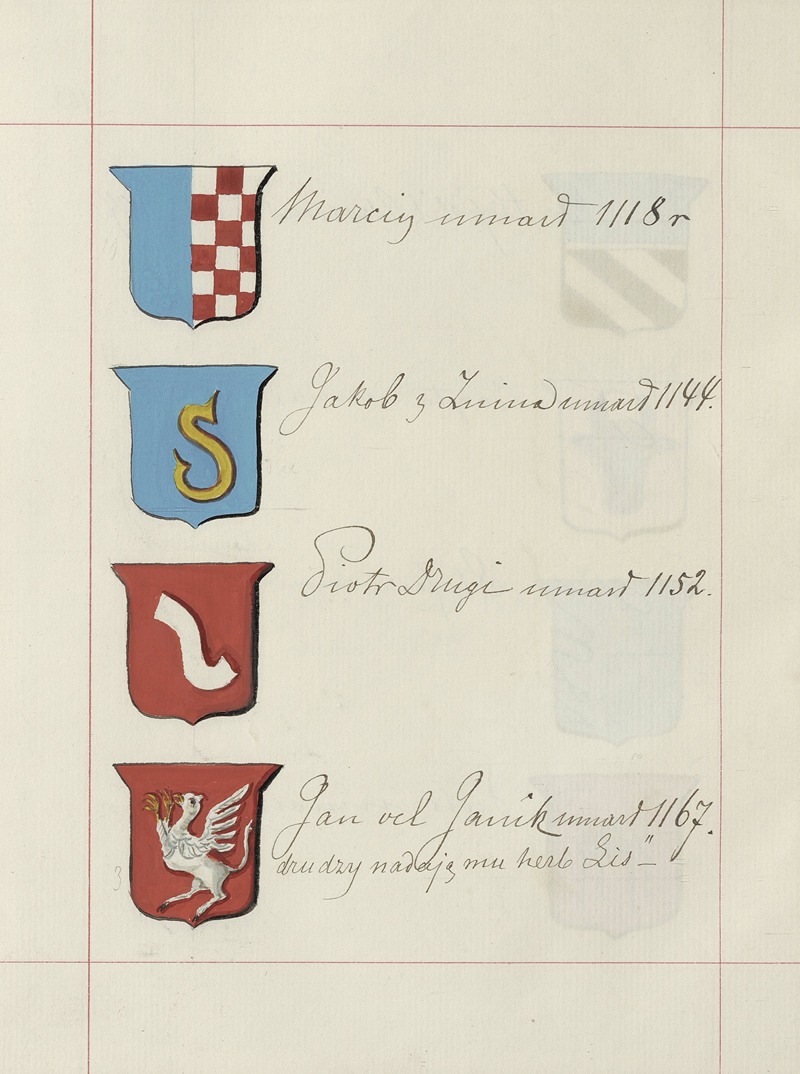 Marcin umarł 1118 r
Jakob z Znina umarł 1144.
Piotr Drugi umarł 1152.
Jan vel Janik umarł 1167.
drudzy nadają mu herb Lis"
3